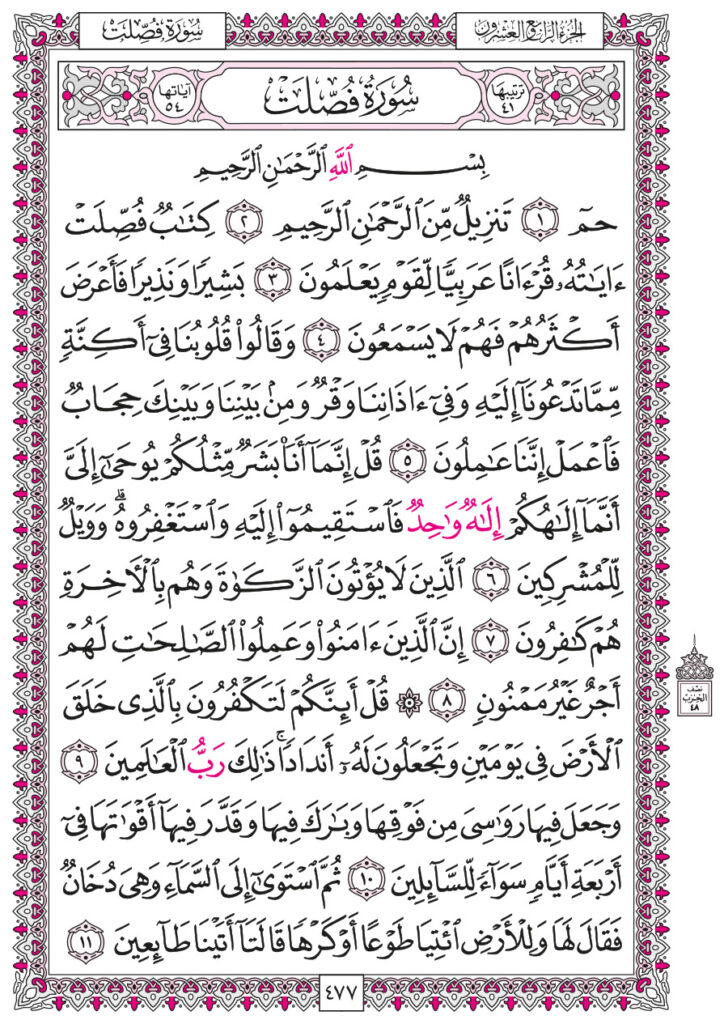 الجزء الرابع العشرون
سورة فصلت
ترتيبها ٤١
سُورَةُ فُصِّلَتْ
آياتها ٥٤
بِسْمِ اللَّهِ الرَّحْمَٰنِ الرَّحِيمِ
حمٓ ١ تَنزِيلٌ مِّنَ ٱلرَّحْمَٰنِ ٱلرَّحِيمِ ٢ كِتَٰبٌ فُصِّلَتْ
ءَايَٰتُهُۥ قُرْءَانًا عَرَبِيًّا لِّقَوْمٍ يَعْلَمُونَ ٣ بَشِيرًا وَنَذِيرًا فَأَعْرَضَ
أَكْثَرُهُمْ فَهُمْ لَا يَسْمَعُونَ ٤ وَقَالُوا۟ قُلُوبُنَا فِىٓ أَكِنَّةٍ
مِّمَّا تَدْعُونَآ إِلَيْهِ وَفِىٓ ءَاذَانِنَا وَقْرٌ وَمِنۢ بَيْنِنَا وَبَيْنِكَ حِجَابٌ
فَٱعْمَلْ إِنَّنَا عَٰمِلُونَ ٥ قُلْ إِنَّمَآ أَنَا۠ بَشَرٌ مِّثْلُكُمْ يُوحَىٰٓ إِلَىَّ
أَنَّمَآ إِلَٰهُكُمْ إِلَٰهٌ وَٰحِدٌ فَٱسْتَقِيمُوٓا۟ إِلَيْهِ وَٱسْتَغْفِرُوهُ ۗ وَوَيْلٌ
لِّلْمُشْرِكِينَ ٦ ٱلَّذِينَ لَا يُؤْتُونَ ٱلزَّكَوٰةَ وَهُم بِٱلْءَاخِرَةِ
هُمْ كَٰفِرُونَ ٧ إِنَّ ٱلَّذِينَ ءَامَنُوا۟ وَعَمِلُوا۟ ٱلصَّٰلِحَٰتِ لَهُمْ
أَجْرٌ غَيْرُ مَمْنُونٍ ٨ ۞ قُلْ أَئِنَّكُمْ لَتَكْفُرُونَ بِٱلَّذِى خَلَقَ
ٱلْأَرْضَ فِى يَوْمَيْنِ وَتَجْعَلُونَ لَهُۥٓ أَندَادًا ۚ ذَٰلِكَ رَبُّ ٱلْعَٰلَمِينَ ٩
وَجَعَلَ فِيهَا رَوَٰسِىَ مِن فَوْقِهَا وَبَٰرَكَ فِيهَا وَقَدَّرَ فِيهَآ أَقْوَٰتَهَا فِىٓ
أَرْبَعَةِ أَيَّامٍ سَوَآءً لِّلسَّآئِلِينَ ١٠ ثُمَّ ٱسْتَوَىٰٓ إِلَى ٱلسَّمَآءِ وَهِىَ دُخَانٌ
فَقَالَ لَهَا وَلِلْأَرْضِ ٱئْتِيَا طَوْعًا أَوْ كَرْهًا قَالَتَآ أَتَيْنَا طَآئِعِينَ ١١
نصف
الحزب
٤٨
٤٧٧